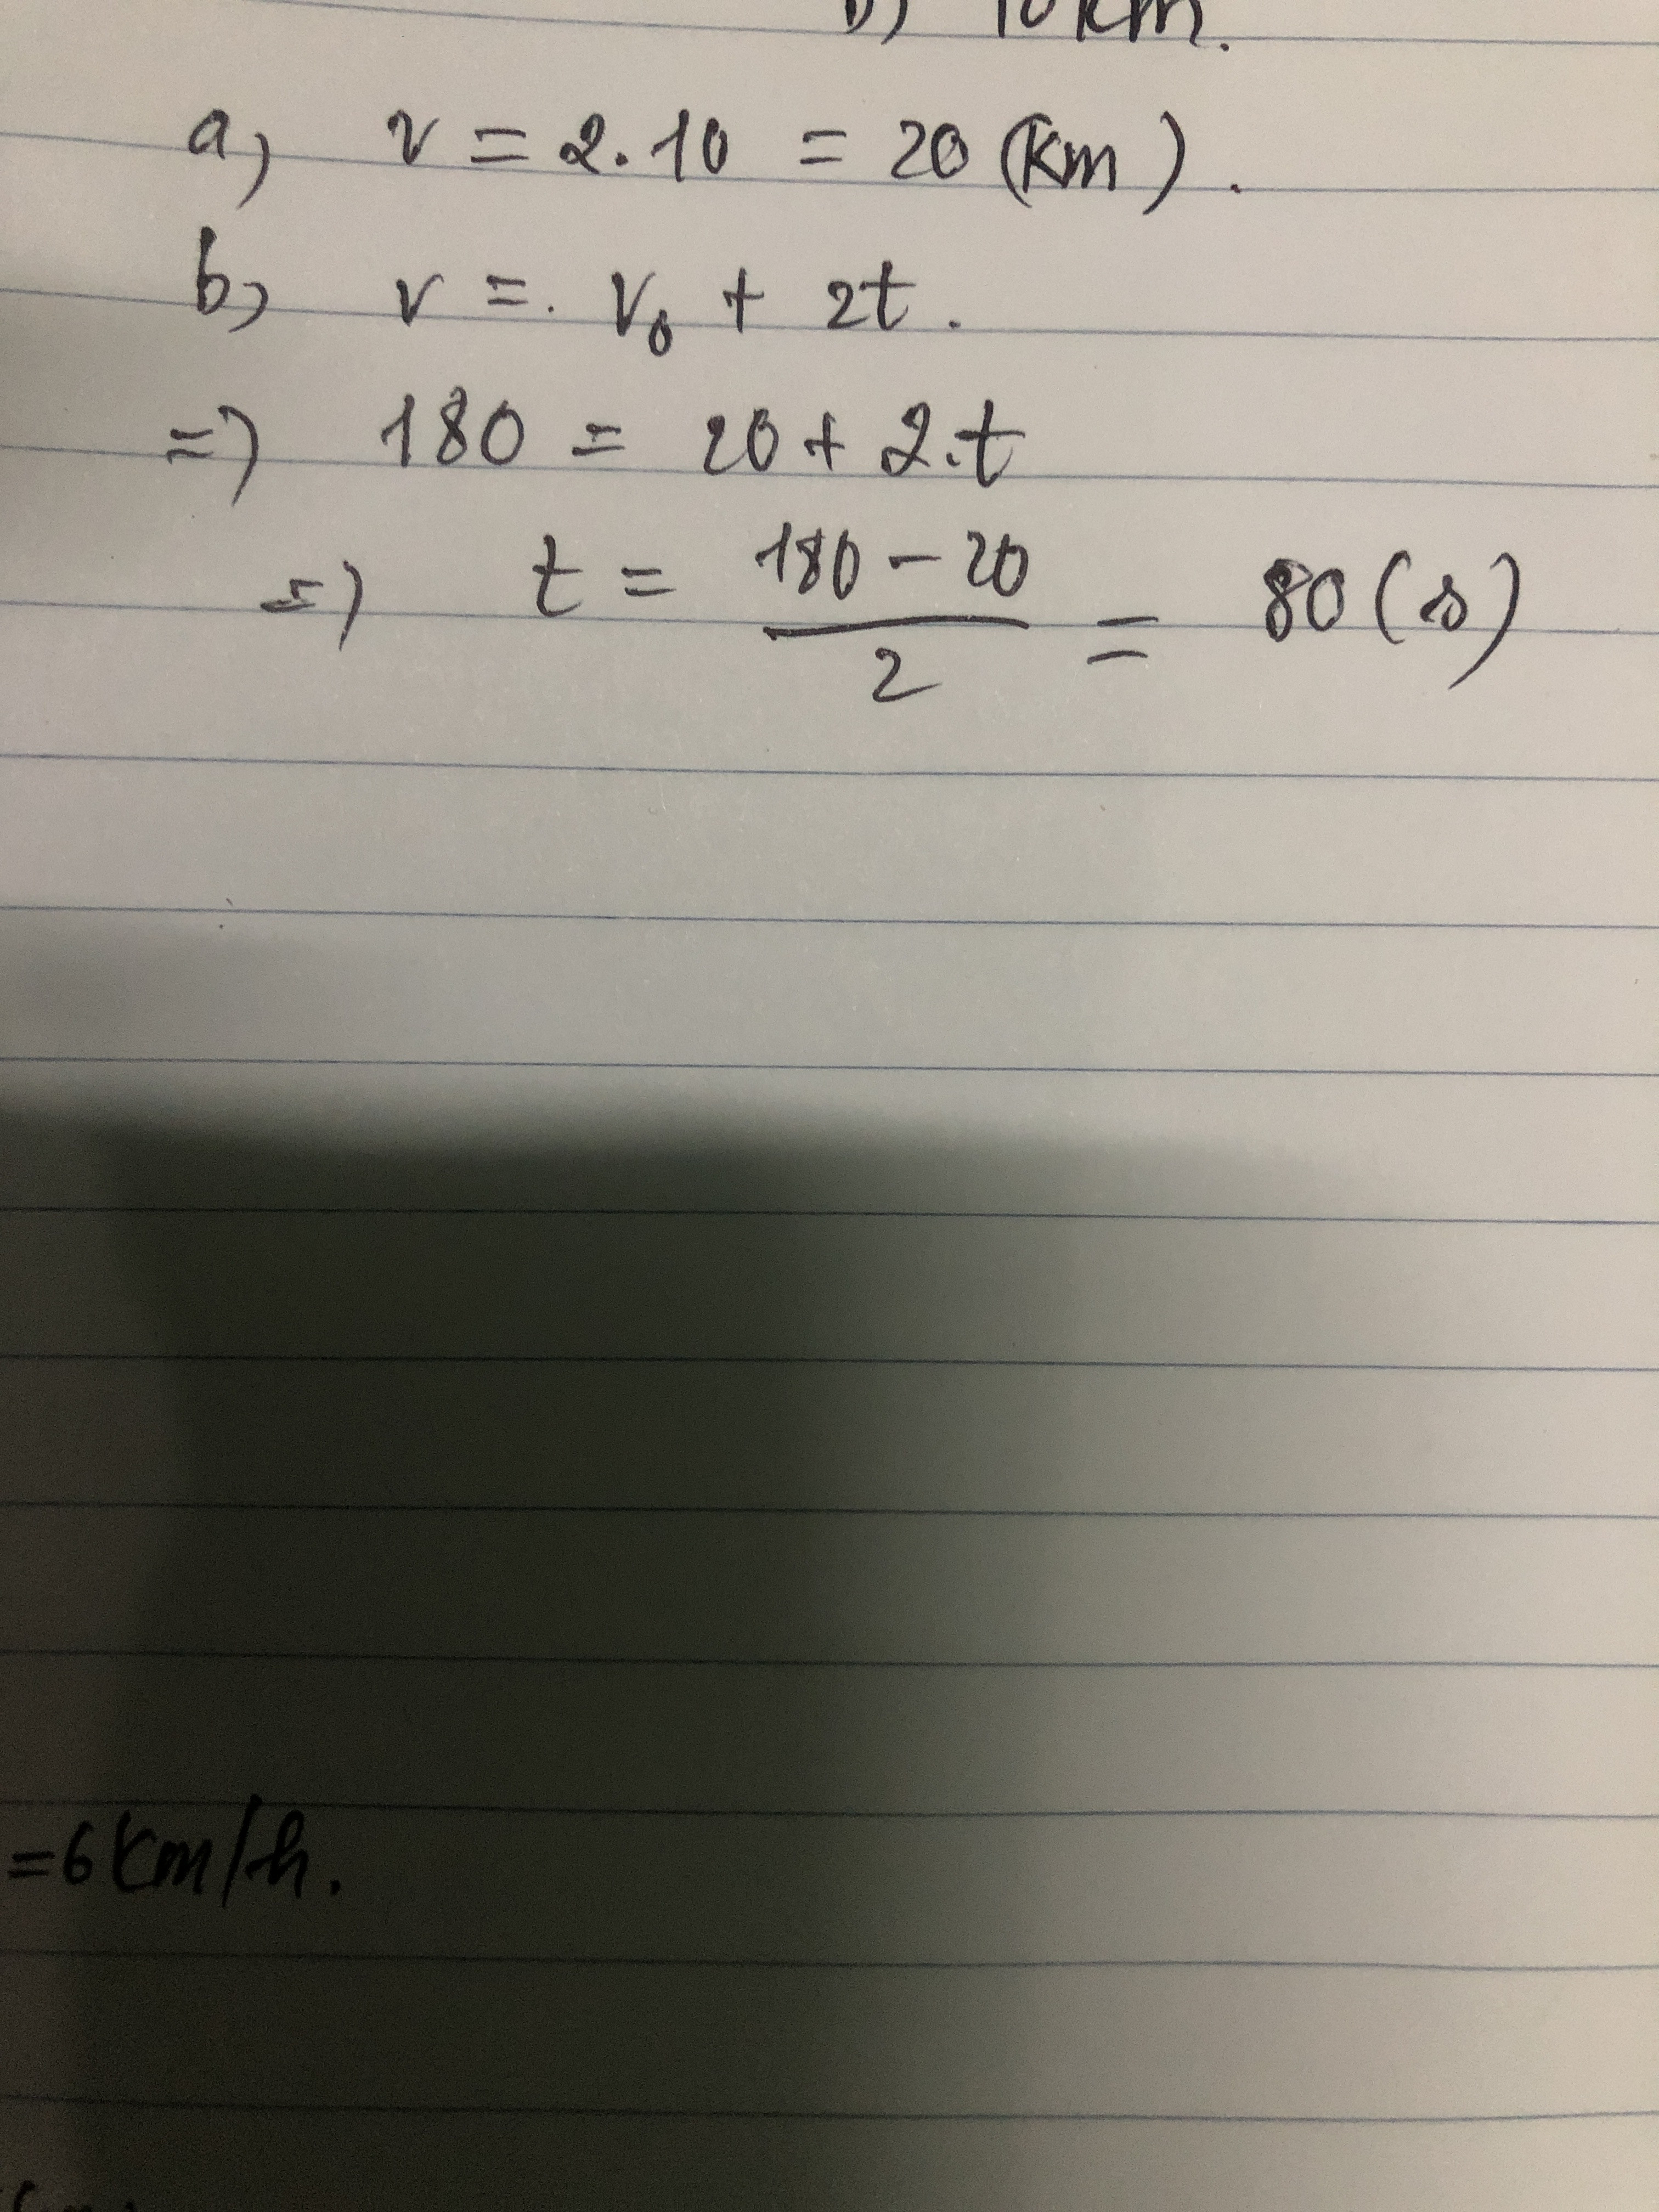 b) 10 km.
a) v = 2.10 = 20 (km).
b) v =. v₀ + 2t.
=) 180 = 20 + 2.t
=) t = \frac{180 - 20}{2} = 80 (s)
=6 km/h.